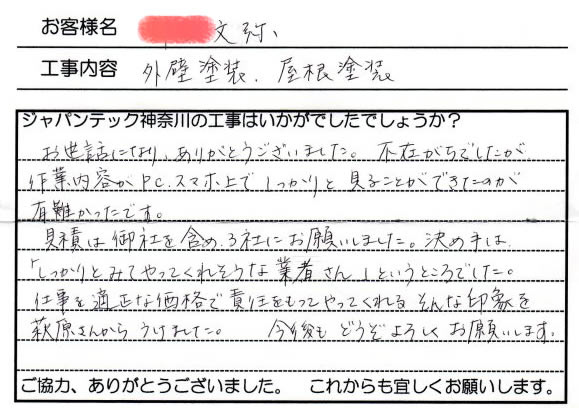 お客様名 文弥
工事内容 外壁塗装、屋根塗装
ジャパンテック神奈川の工事はいかがでしたでしょうか？
お世話になり、ありがとうございました。不在がちでしたが
作業内容がPC、スマホ上でしっかりと見ることができたのが
有難かったです。
見積は御社を含め、3社にお願いしました。決め手は、
「しっかりとみてやってくれそうな業者さん」というところでした。
仕事を適正な価格で責任をもってやってくれるそんな印象を
萩原さんからうけました。 今後もどうぞよろしくお願いします。
ご協力、ありがとうございました。 これからも宜しくお願いします。